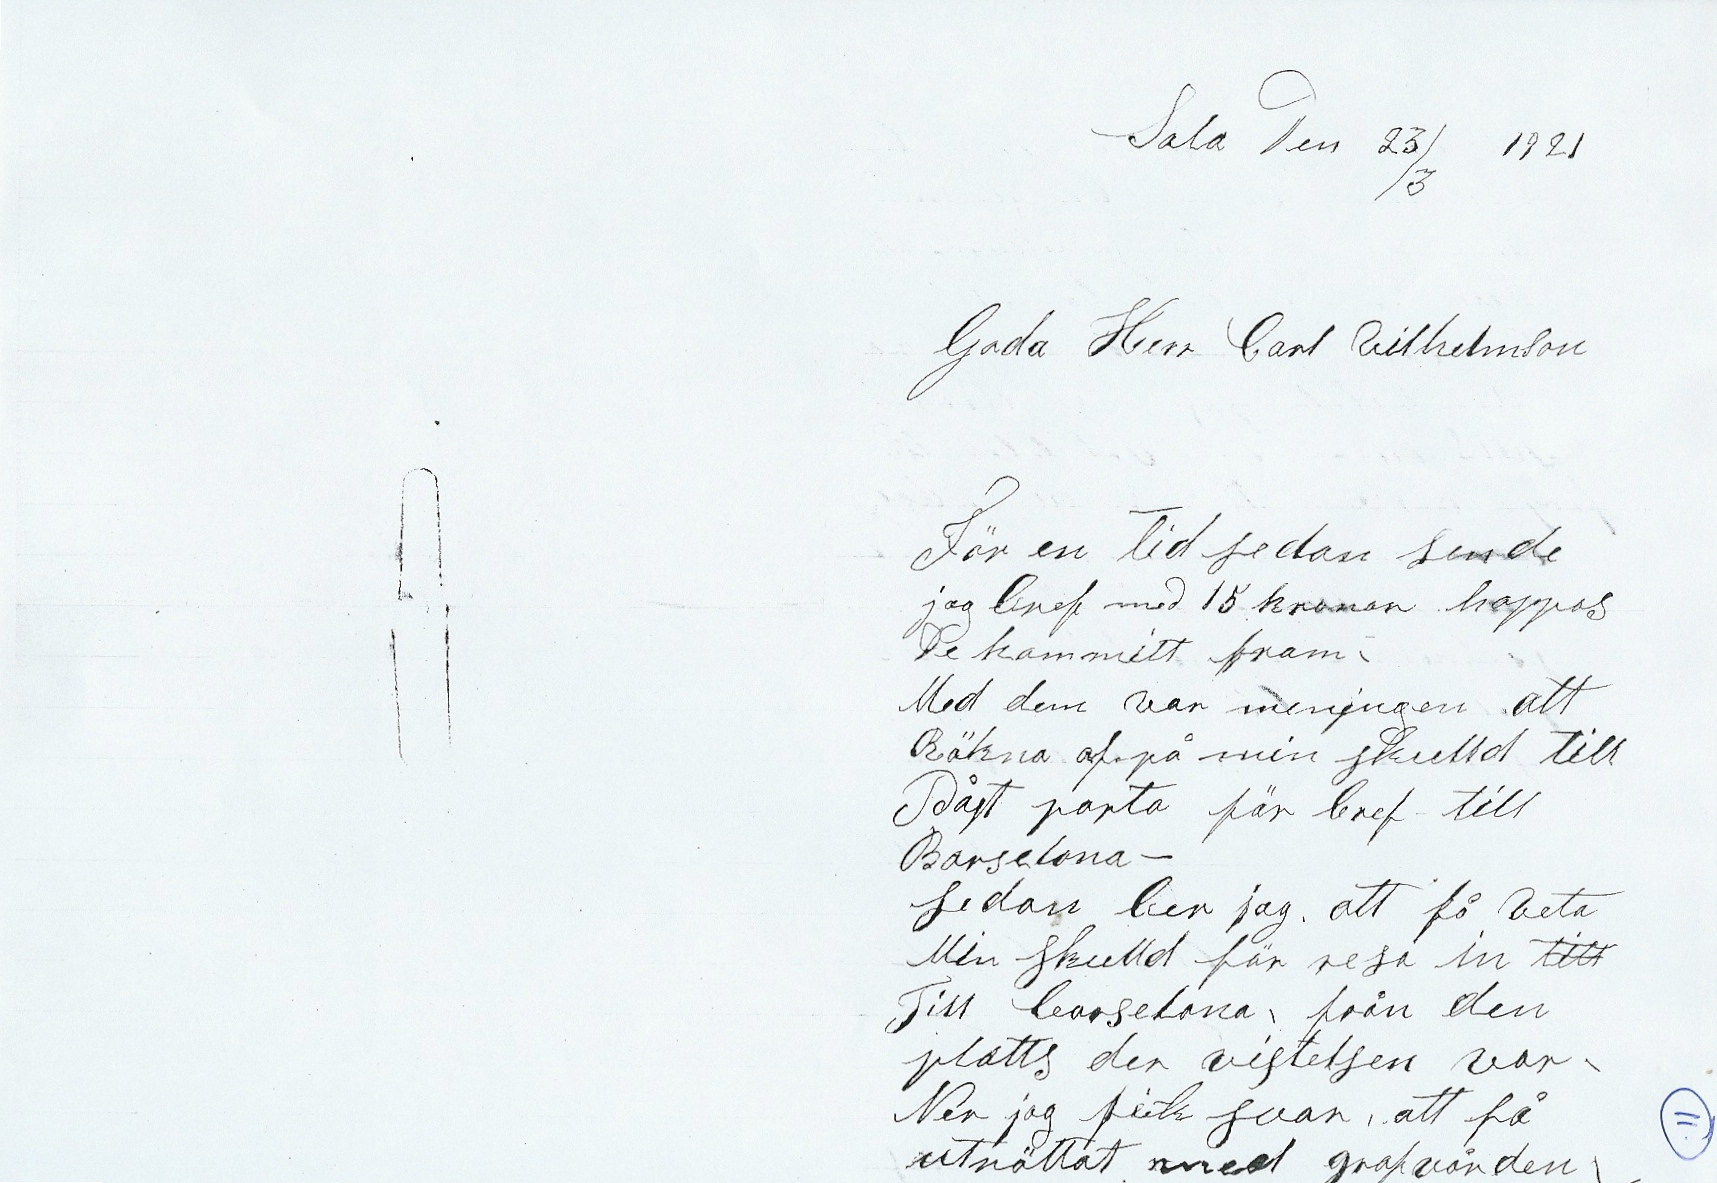 Sala Den 23/3 1921
Goda Herr Carl Vilhelmson
För en tid sedan sende
jag bref med 15 kronor hoppas
De kommitt fram.
Med dem var meningen att
Räkna af på min skulld till
Påst porto för bref till
Barselona —
sedan ber jag. att få veta
Min skulld för resa in till
Till barselona, från den
platts der vistelsen var.
Ner jag fick svar, att få
uträttat med grafvården,
11